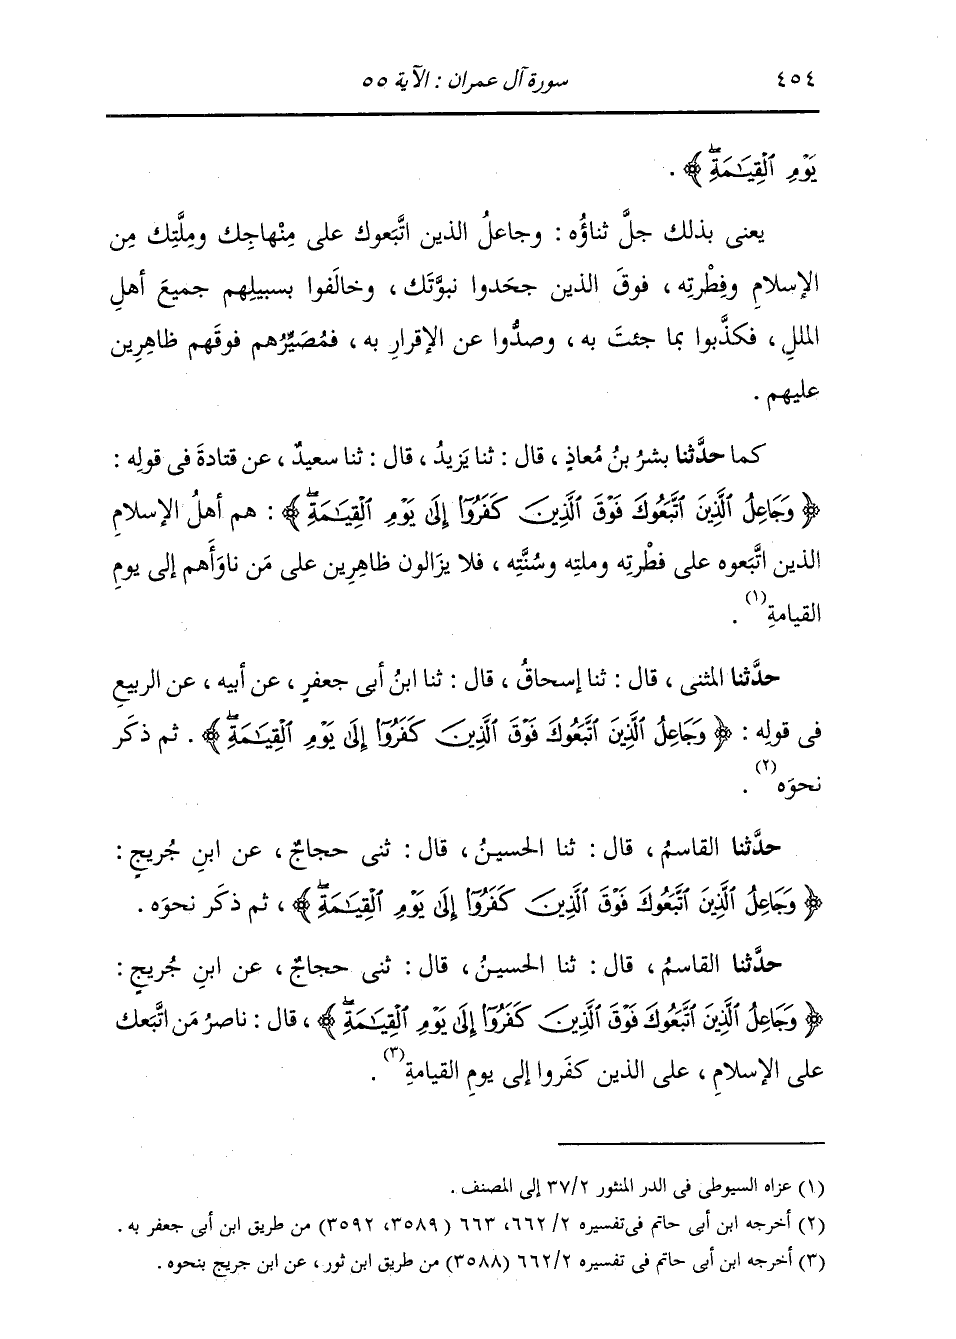 ٤٥٤ سورة آل عمران : الآية ٥٥
يَوْمِ ٱلْقِيَـٰمَةِۖ ﴾ .
يعنى بذلك جلَّ ثناؤُه : وجاعلُ الذين اتَّبَعوك على مِنْهاجِك ومِلَّتِك مِن
الإسلامِ وفِطْرتِه ، فوقَ الذين جحَدوا نبوَّتَك ، وخالَفوا بسبيلِهم جميعَ أهلِ
المللِ ، فكذَّبوا بما جئتَ به ، وصدُّوا عن الإقرارِ به ، فمُصَيِّرُهم فوقَهم ظاهِرِين
عليهم .
كما حدَّثنا بشرُ بنُ مُعاذٍ ، قال : ثنا يَزيدُ ، قال : ثنا سعيدٌ ، عن قتادةَ فى قولِه :
﴿ وَجَاعِلُ ٱلَّذِينَ ٱتَّبَعُوكَ فَوْقَ ٱلَّذِينَ كَفَرُوٓا۟ إِلَىٰ يَوْمِ ٱلْقِيَـٰمَةِۖ ﴾ : هم أهلُ الإسلامِ
الذين اتَّبَعوه على فطْرتِه وملتِه وسُنَّتِه ، فلا يزَالون ظاهِرين على مَن ناوَأَهم إلى يومِ
القيامةِ(١) .
حدَّثنا المثنى ، قال : ثنا إسحاقُ ، قال : ثنا ابنُ أبى جعفرٍ ، عن أبيه ، عن الربيعِ
فى قولِه : ﴿ وَجَاعِلُ ٱلَّذِينَ ٱتَّبَعُوكَ فَوْقَ ٱلَّذِينَ كَفَرُوٓا۟ إِلَىٰ يَوْمِ ٱلْقِيَـٰمَةِۖ ﴾ . ثم ذكَر
نحوَه(٢) .
حدَّثنا القاسمُ ، قال : ثنا الحسينُ ، قال : ثنى حجاجٌ ، عن ابنِ جُريجٍ :
﴿ وَجَاعِلُ ٱلَّذِينَ ٱتَّبَعُوكَ فَوْقَ ٱلَّذِينَ كَفَرُوٓا۟ إِلَىٰ يَوْمِ ٱلْقِيَـٰمَةِۖ ﴾ ، ثم ذكَر نحوَه .
حدَّثنا القاسمُ ، قال : ثنا الحسينُ ، قال : ثنى حجاجٌ ، عن ابنِ جُريجٍ :
﴿ وَجَاعِلُ ٱلَّذِينَ ٱتَّبَعُوكَ فَوْقَ ٱلَّذِينَ كَفَرُوٓا۟ إِلَىٰ يَوْمِ ٱلْقِيَـٰمَةِۖ ﴾ ، قال : ناصرُ مَن اتَّبَعك
على الإسلامِ ، على الذين كفَروا إلى يومِ القيامةِ(٣) .
(١) عزاه السيوطى فى الدر المنثور ٣٧/٢ إلى المصنف .
(٢) أخرجه ابن أبى حاتم فى تفسيره ٦٦٢/٢، ٦٦٣ (٣٥٨٩، ٣٥٩٢) من طريق ابن أبى جعفر به .
(٣) أخرجه ابن أبى حاتم فى تفسيره ٦٦٢/٢ (٣٥٨٨) من طريق ابن ثور ، عن ابن جريج بنحوه .